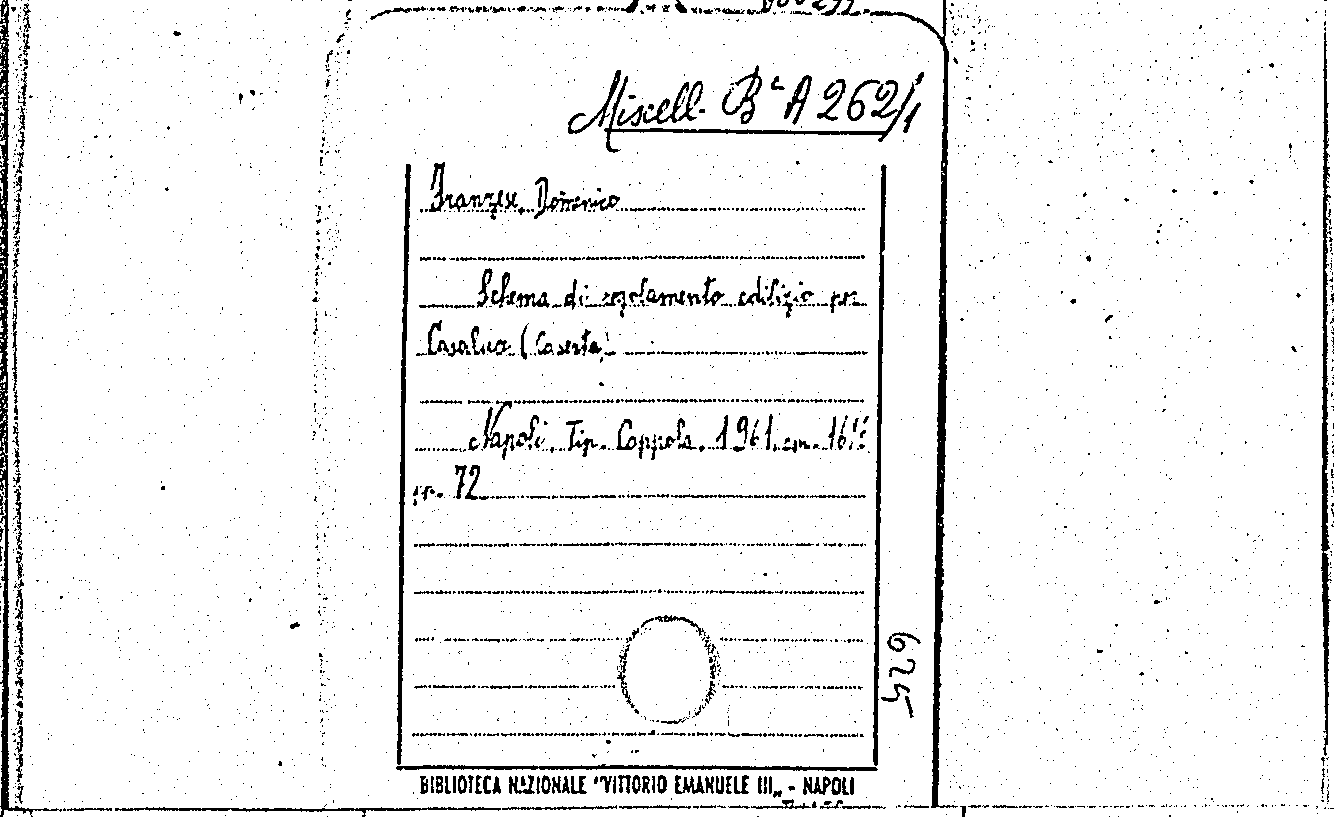 Miscell. Bᵃ A 262/1
Franzese, Domenico
Schema di regolamento edilizio per
Casaluce (Caserta)
Napoli, Tip. Coppola, 1961, cm. 16½
pp. 72
625
BIBLIOTECA NAZIONALE "VITTORIO EMANUELE III„ - NAPOLI